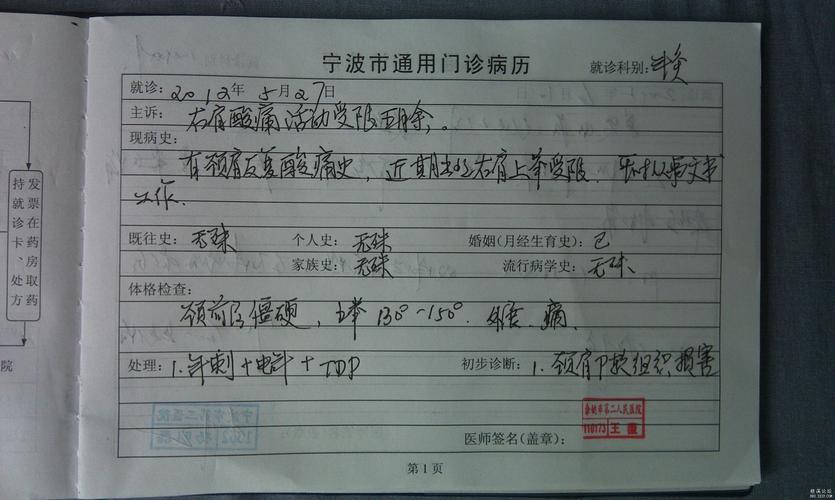 宁波市通用门诊病历
就诊科别:针灸
就诊: 2012年5月27日
主诉: 右肩酸痛活动受限五月余。
现病史:
有颈肩反复酸痛史, 近期出现右肩上举受限. 长时从事文书
工作.
既往史: 无殊 个人史: 无殊 婚姻(月经生育史): 已
家族史: 无殊 流行病学史: 无殊
体格检查:
颈肩 僵硬, 上举130°~150°. 痛.
处理: 1. 针刺+电针+TDP 初步诊断: 1. 颈肩部软组织损害
余姚市第二人民医院
110173 王
医师签名(盖章):
第1页
发票在药房取药
持就诊卡、处方
院